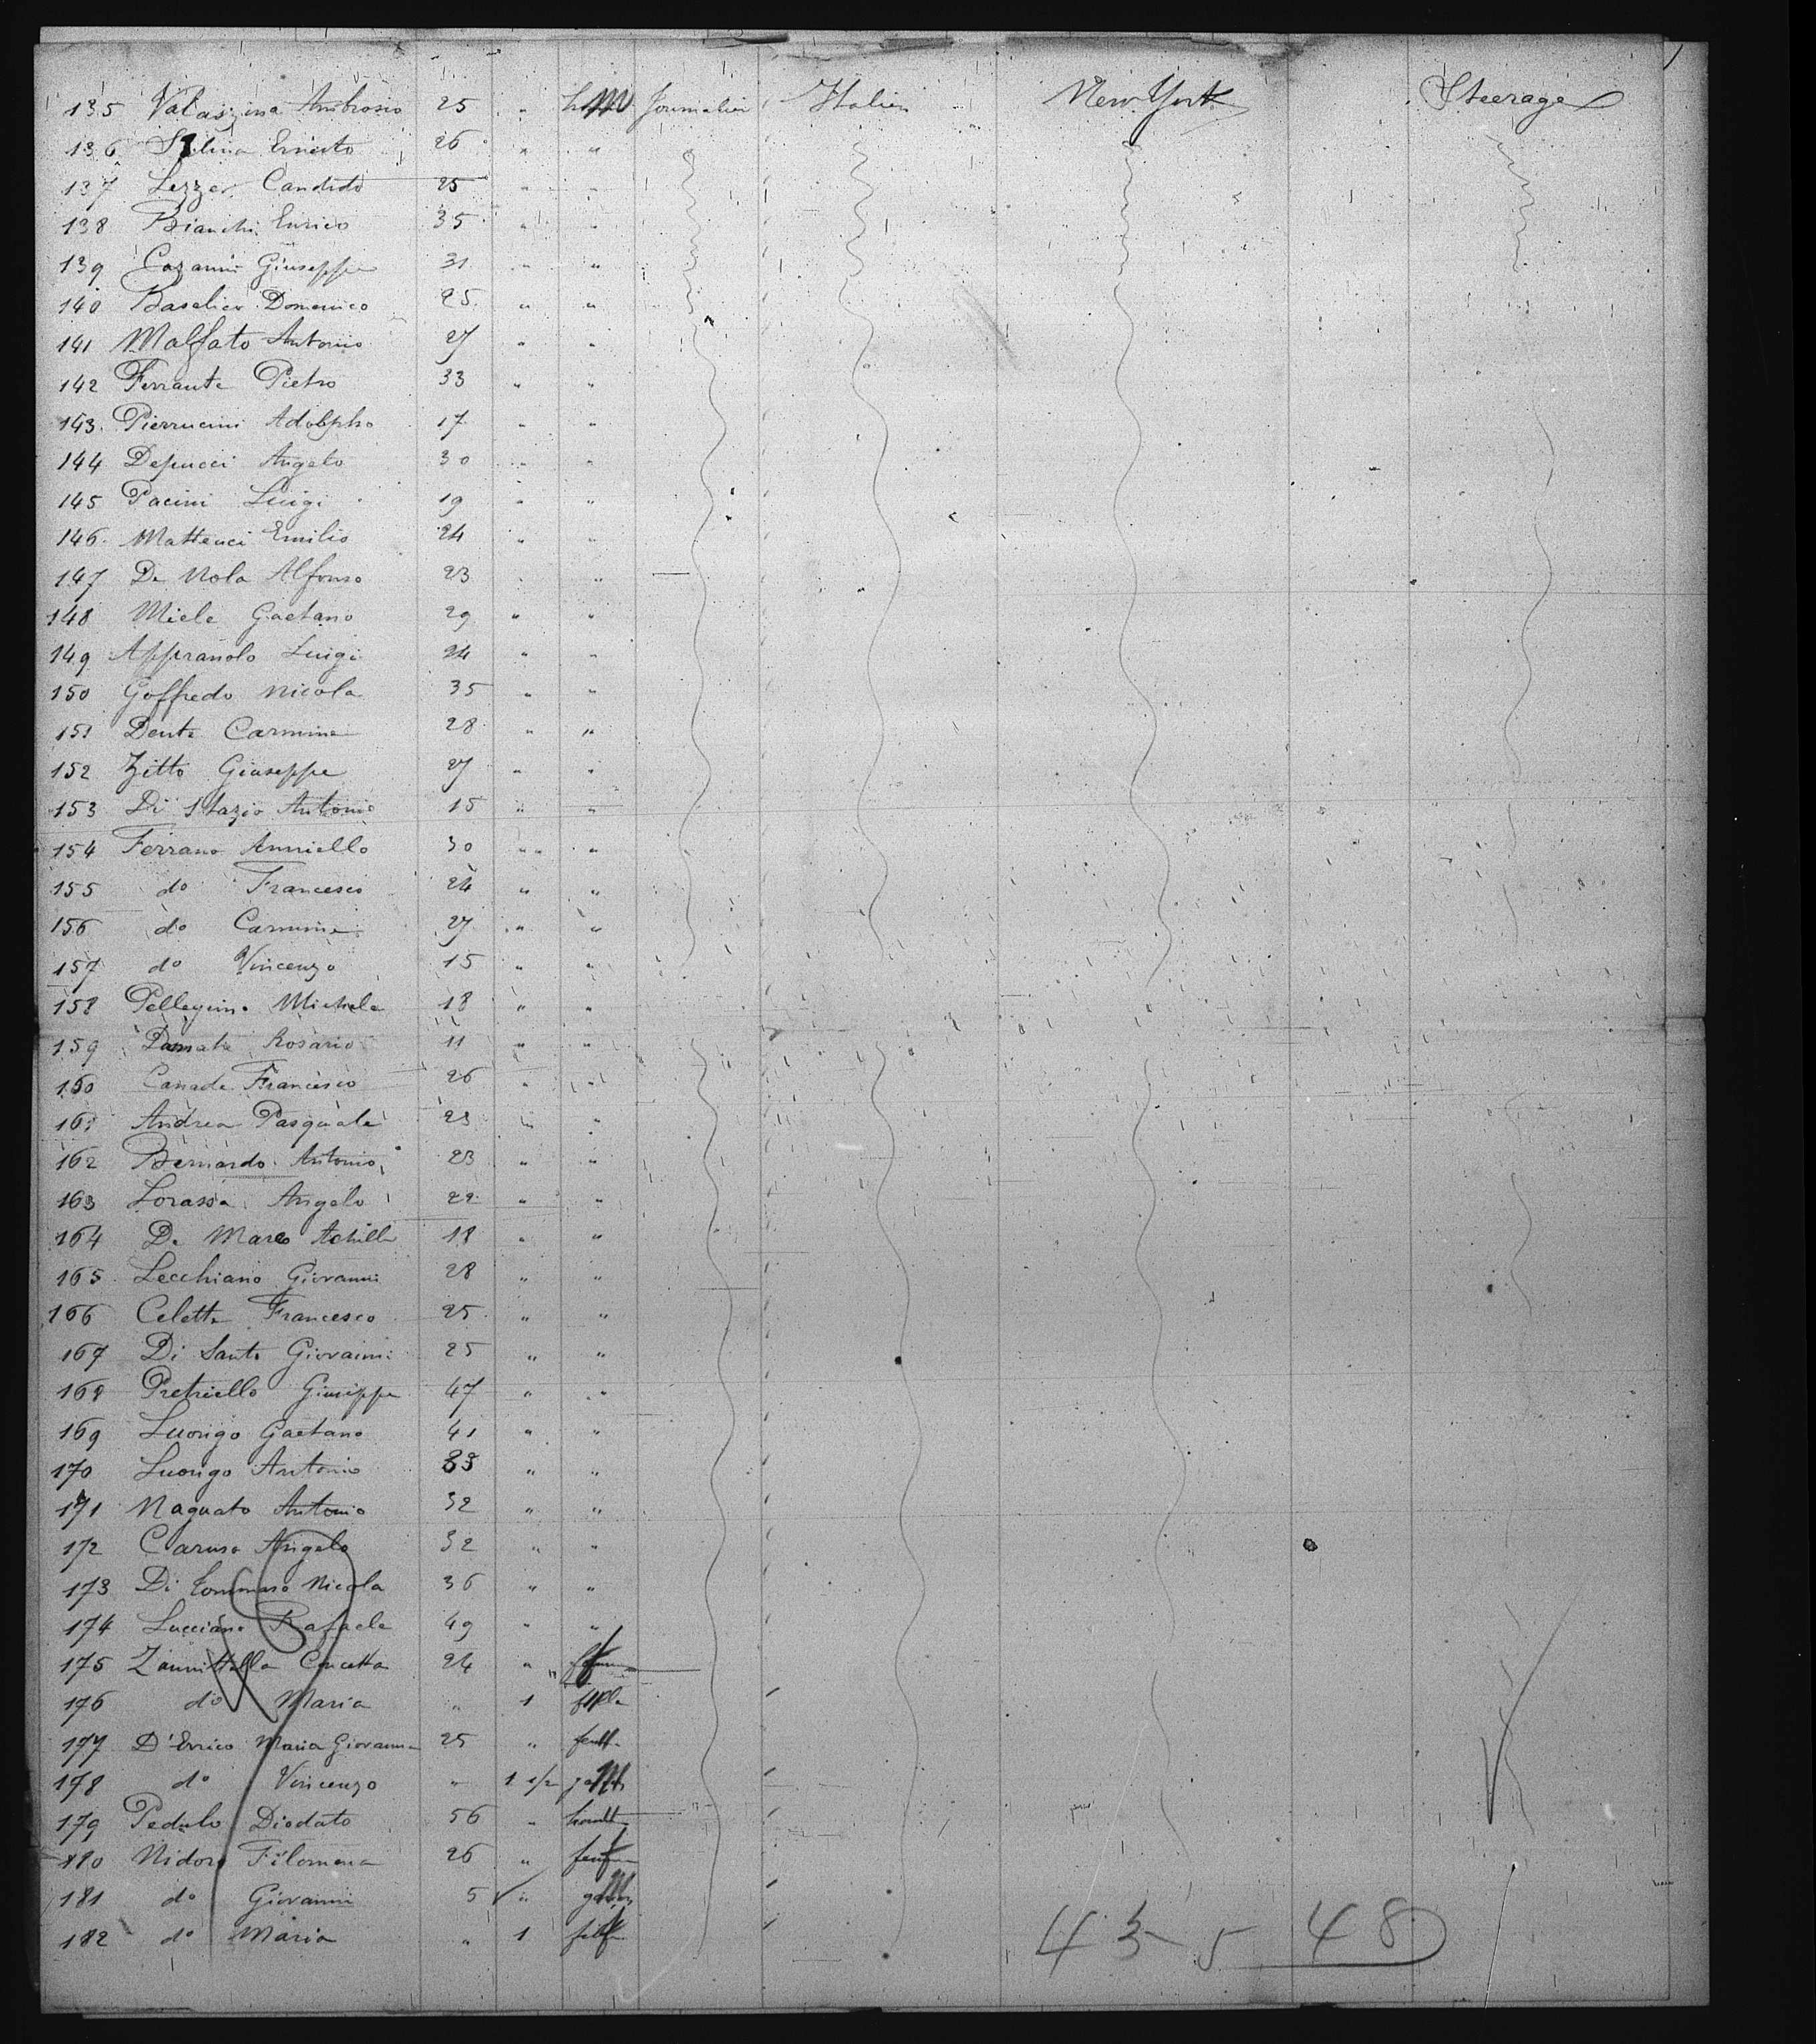 135 Valaszina Ambrosio 25 " M Journalier Italie New York Steerage
136 Selina Ernesto 26 " "
137 Lezzer Candido 25 " "
138 Bianchi Enrico 35 " "
139 Cozanni Giuseppe 31 " "
140 Baselice Domenico 25 " "
141 Malfato Antonio 27 " "
142 Ferrante Pietro 33 " "
143 Pierrucini Adolpho 17 " "
144 Depucci Angelo 30 " "
145 Pacini Luigi 19 " "
146 Matteuci Emilio 24 " "
147 De Nola Alfonso 23 " "
148 Miele Gaetano 29 " "
149 Appranolo Luigi 24 " "
150 Goffredo Nicola 35 " "
151 Dente Carmine 28 " "
152 Zitto Giuseppe 27 " "
153 Di Stazio Antonio 15 " "
154 Ferrano Anniello 30 " "
155 do Francesco 24 " "
156 do Carmine 27 " "
157 do Vincenzo 15 " "
158 Pellegrino Michele 18 " "
159 Damato Rosario 11 " "
160 Canade Francesco 26 " "
161 Andrea Pasquale 23 " "
162 Bernardo Antonio 23 " "
163 Lorassa Angelo 22 " "
164 De Marco Achille 18 " "
165 Lecchiano Giovanni 28 " "
166 Celetta Francesco 25 " "
167 Di Santo Giovanni 25 " "
168 Pretriello Giuseppe 47 " "
169 Luongo Gaetano 41 " "
170 Luongo Antonio 33 " "
171 Naguato Antonio 32 " "
172 Caruso Angelo 32 " "
173 Di Tommaso Nicola 36 " "
174 Lucciano Rafaele 49 " "
175 Zannittella Concetta 24 " f
176 do Maria " 1 fille
177 D'Errico Maria Giovanna 25 "
178 do Vincenzo " 1 1/2 M
179 Pedulo Diodato 56 "
180 Nidoro Filomena 26 " f
181 do Giovanni 5 " M
182 do Maria " 1 f
43 5 48